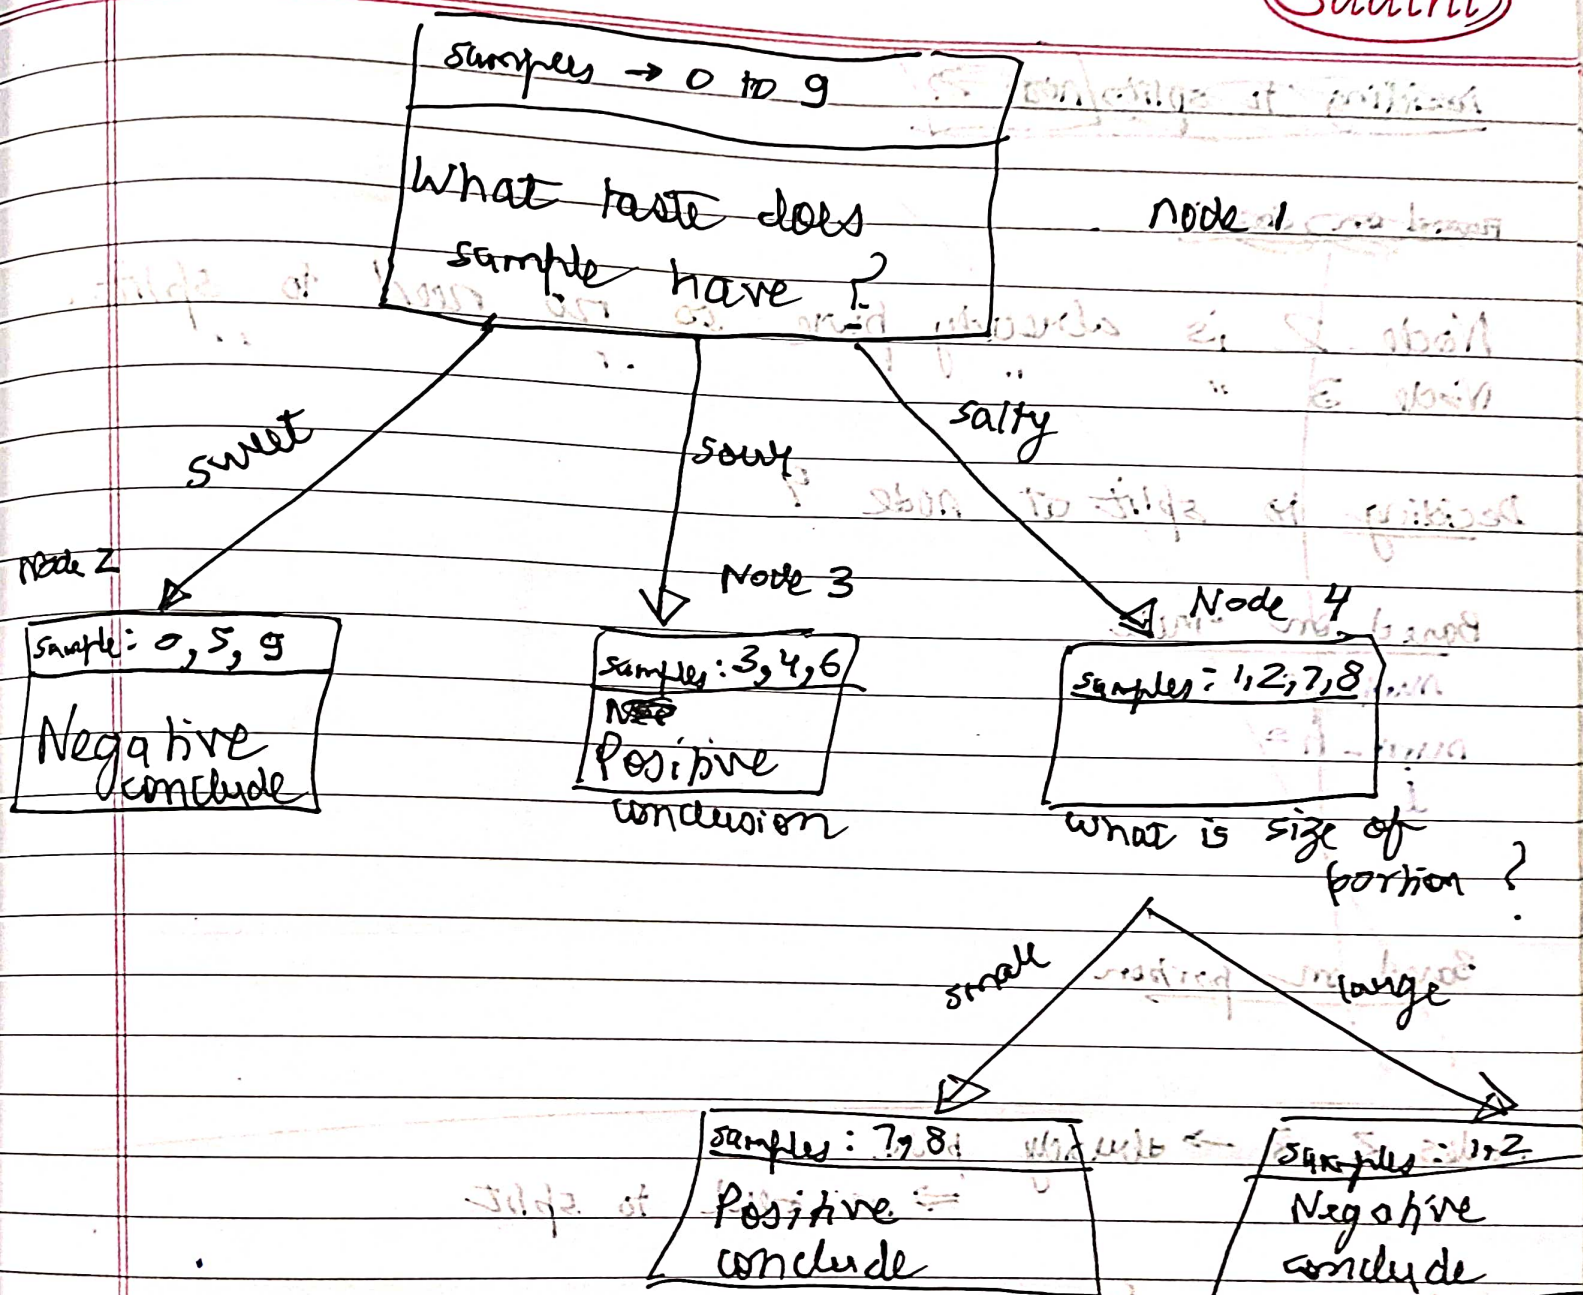 samples → 0 to 9
What taste does
sample have ?
node 1
sweet
sour
salty
Node 2
Node 3
Node 4
sample: 0, 5, 9
Negative
conclude
samples: 3, 4, 6
Positive
conclusion
samples: 1, 2, 7, 8
what is size of
portion ?
small
large
samples: 7, 8
Positive
conclude
samples: 1, 2
Negative
conclude